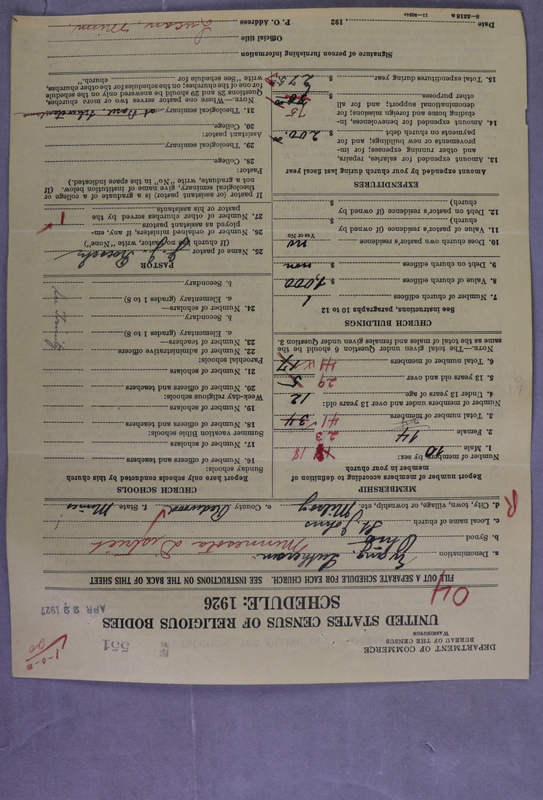 DEPARTMENT OF COMMERCE
BUREAU OF THE CENSUS
WASHINGTON
551
UNITED STATES CENSUS OF RELIGIOUS BODIES
SCHEDULE: 1926
APR 22 1927
04
FILL OUT A SEPARATE SCHEDULE FOR EACH CHURCH. SEE INSTRUCTIONS ON THE BACK OF THIS SHEET
a. Denomination Evang. Lutheran
b. Synod Ohio Minnesota District
c. Local name of church St Johns
d. City, town, village, or township, etc. Milroy e. County Redwood f. State Minn
R
MEMBERSHIP
Report number of members according to definition of
member in your church
Number of members by sex:
1. Male 10 18
2. Female 14 23
3. Total number of members 34 41
Number of members under and over 13 years old:
4. Under 13 years of age 12
5. 13 years old and over 5 29
6. Total number of members 17 41
NOTE.—The total given under Question 6 should be the
same as the total of males and females given under Question 3.
CHURCH BUILDINGS
See instructions, paragraphs 10 to 12
7. Number of church edifices 1
8. Value of church edifices $ 1,000
9. Debt on church edifices $ non
10. Does church own pastor's residence no
Yes or No
11. Value of pastor's residence (if owned by
church) $
12. Debt on pastor's residence (if owned by
church) $
EXPENDITURES
Amount expended by your church during last fiscal year
13. Amount expended for salaries, repairs,
and other running expenses; for im-
provements or new buildings; and for
payments on church debt $ 200.00
14. Amount expended for benevolences, in-
cluding home and foreign missions; for
denominational support; and for all
other purposes $ 75
15. Total expenditures during year $ 275
CHURCH SCHOOLS
Report here only schools conducted by this church
Sunday schools:
16. Number of officers and teachers
17. Number of scholars
Summer vacation Bible schools:
18. Number of officers and teachers
19. Number of scholars
Week-day religious schools:
20. Number of officers and teachers
21. Number of scholars
Parochial schools:
22. Number of administrative officers
23. Number of teachers—
a. Elementary (grades 1 to 8)
b. Secondary
24. Number of scholars—
a. Elementary (grades 1 to 8)
b. Secondary
PASTOR
25. Name of pastor
(If church has no pastor, write "None")
26. Number of ordained ministers, if any, em-
ployed as assistant pastors
27. Number of other churches served by the
pastor or his assistants 1
If pastor (or assistant pastor) is a graduate of a college or
theological seminary, give name of institution below. (If
not a graduate, write "No" in the space indicated.)
Pastor:
28. College
29. Theological seminary
Assistant pastor:
30. College
31. Theological seminary
NOTE.—Where one pastor serves two or more churches,
Questions 28 and 29 should be answered only on the schedule
for one of the churches; on the schedule for the other churches,
write "See schedule for church."
Signature of person furnishing information
Official title
Date , 192 P. O. Address Lucan, Minn